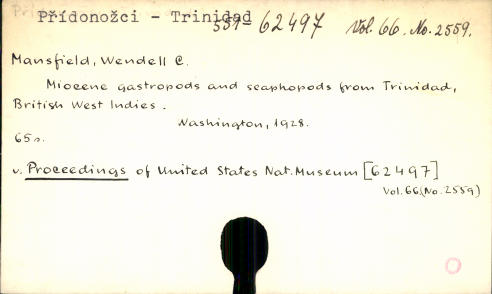 Přídonožci - Trinidad 62497 Vol. 66. No. 2559.
Mansfield, Wendell C.
Miocene gastropods and scaphopods from Trinidad,
British West Indies.
Washington, 1928.
65s.
v. Proceedings of United States Nat. Museum [62497]
Vol. 66 (No. 2559)